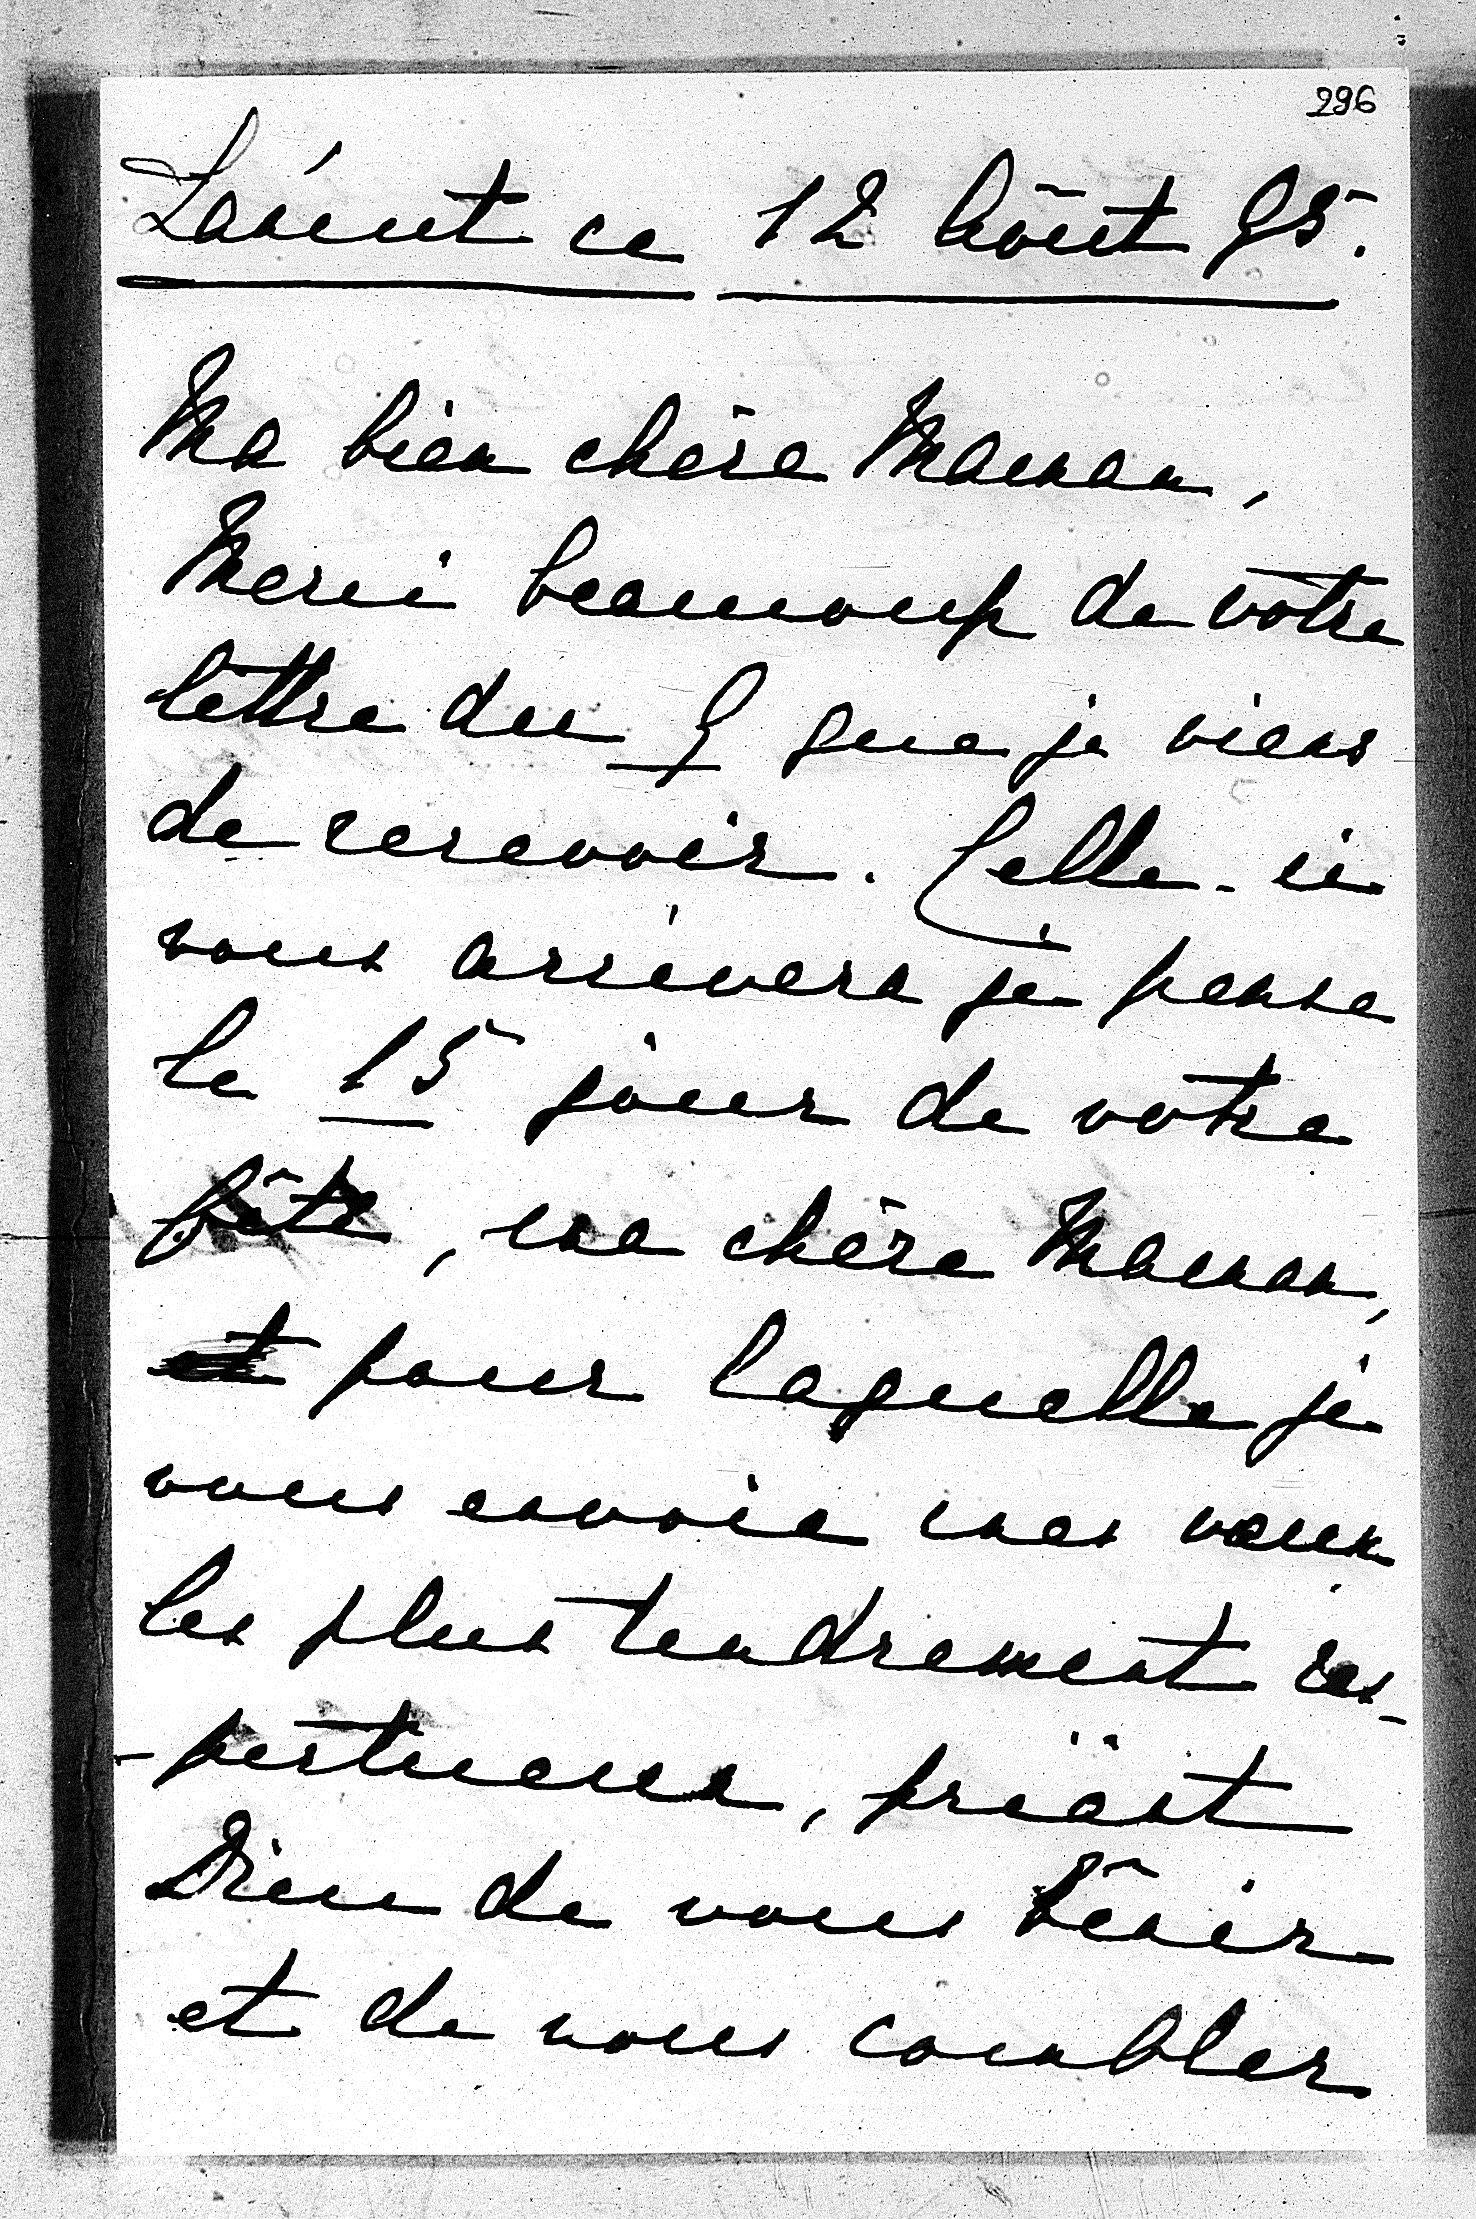 296
Lacénet ce 12 Août 95.
Ma bien chère Maman,
Merci beaucoup de votre
lettre du 9 que je viens
de recevoir. Celle-ci
vous arrivera je pense
le 15 jour de votre
fête, ma chère Maman,
et pour laquelle je
vous envoie mes vœux
les plus tendrement res-
-pectueux, priant
Dieu de vous bénir
et de vous combler